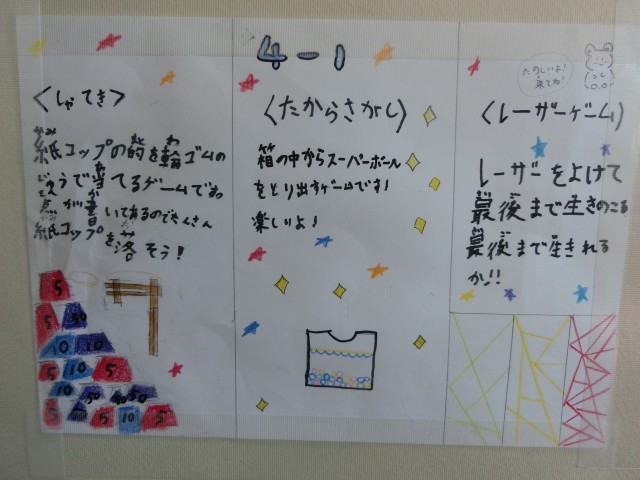 4-1
<しゃてき>
紙コップの的を輪ゴムの
じゅうで当てるゲームです。
点が書いてあるのでたくさん
紙コップを落そう!
5
5 50
10 10
5 10 5
10
5 10 5
<たからさがし>
箱の中からスーパーボール
をとり出すゲームです!
楽しいよ!
たのしいよ!
来てね!
<レーザーゲーム>
レーザーをよけて
最後まで生きのこる
最後まで生きれる
か!!